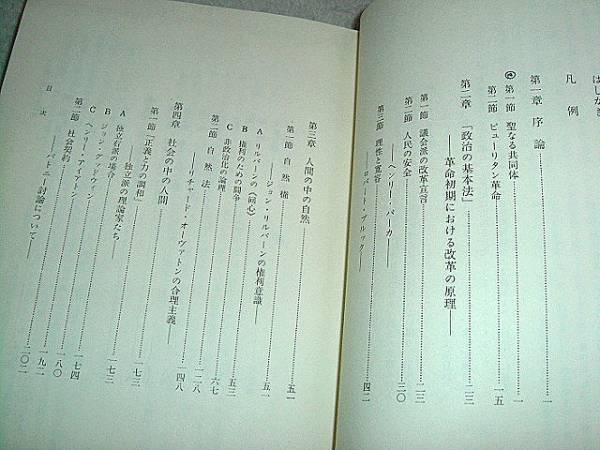 はしがき
凡例
第一章 序論 一
第一節 聖なる共同体 一
第二節 ピューリタン革命 一五
第二章 「政治の基本法」 二三
――革命初期における改革の原理――
第一節 議会派の改革宣言 二三
第二節 人民の安全 三〇
――ヘンリー・パーカー――
第三節 理性と寛容 四二
――ロバート・ブルック――
第三章 人間の中の自然 五一
第一節 自然権 五一
――ジョン・リルバーンの権利意識――
A リルバーンの〈回心〉
B 権利のための闘争 五三
C 非政治化の論理 六七
第二節 自然法 一二八
――リチャード・オーヴァトンの合理主義――
第四章 社会の中の人間 一四八
第一節 「正義と力の調和」 一七三
――独立派の理論家たち――
A 独立右派の場合 一七三
B ジョン・グッドウィン 一七四
C ヘンリー・アイアトン 一八〇
第二節 社会契約 一九二
――パトニー討論について―― 二〇二
目次